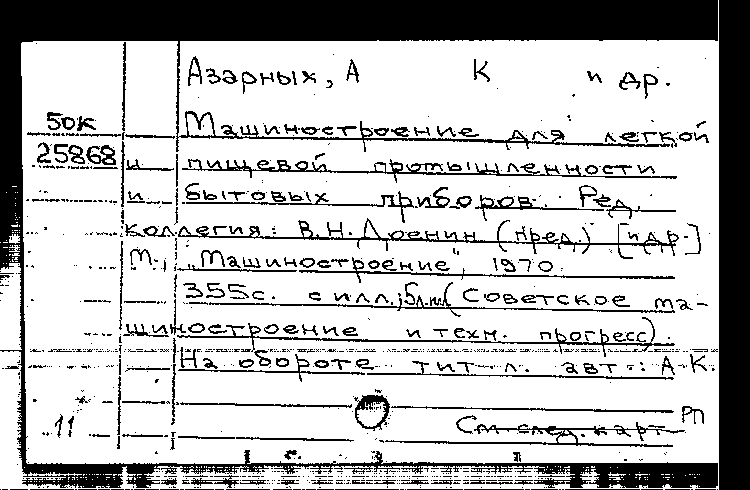 Азарных, А К и др.
50к Машиностроение для легкой
25868 и пищевой промышленности
и бытовых приборов. Ред.
коллегия: В.Н. Доенин (пред.) [и др.]
М., "Машиностроение", 1970.
355с. с илл.; 5л.ил (Советское ма-
шиностроение и техн. прогресс).
На обороте тит. л. авт.: А.К.
РП
11 См. след. карт